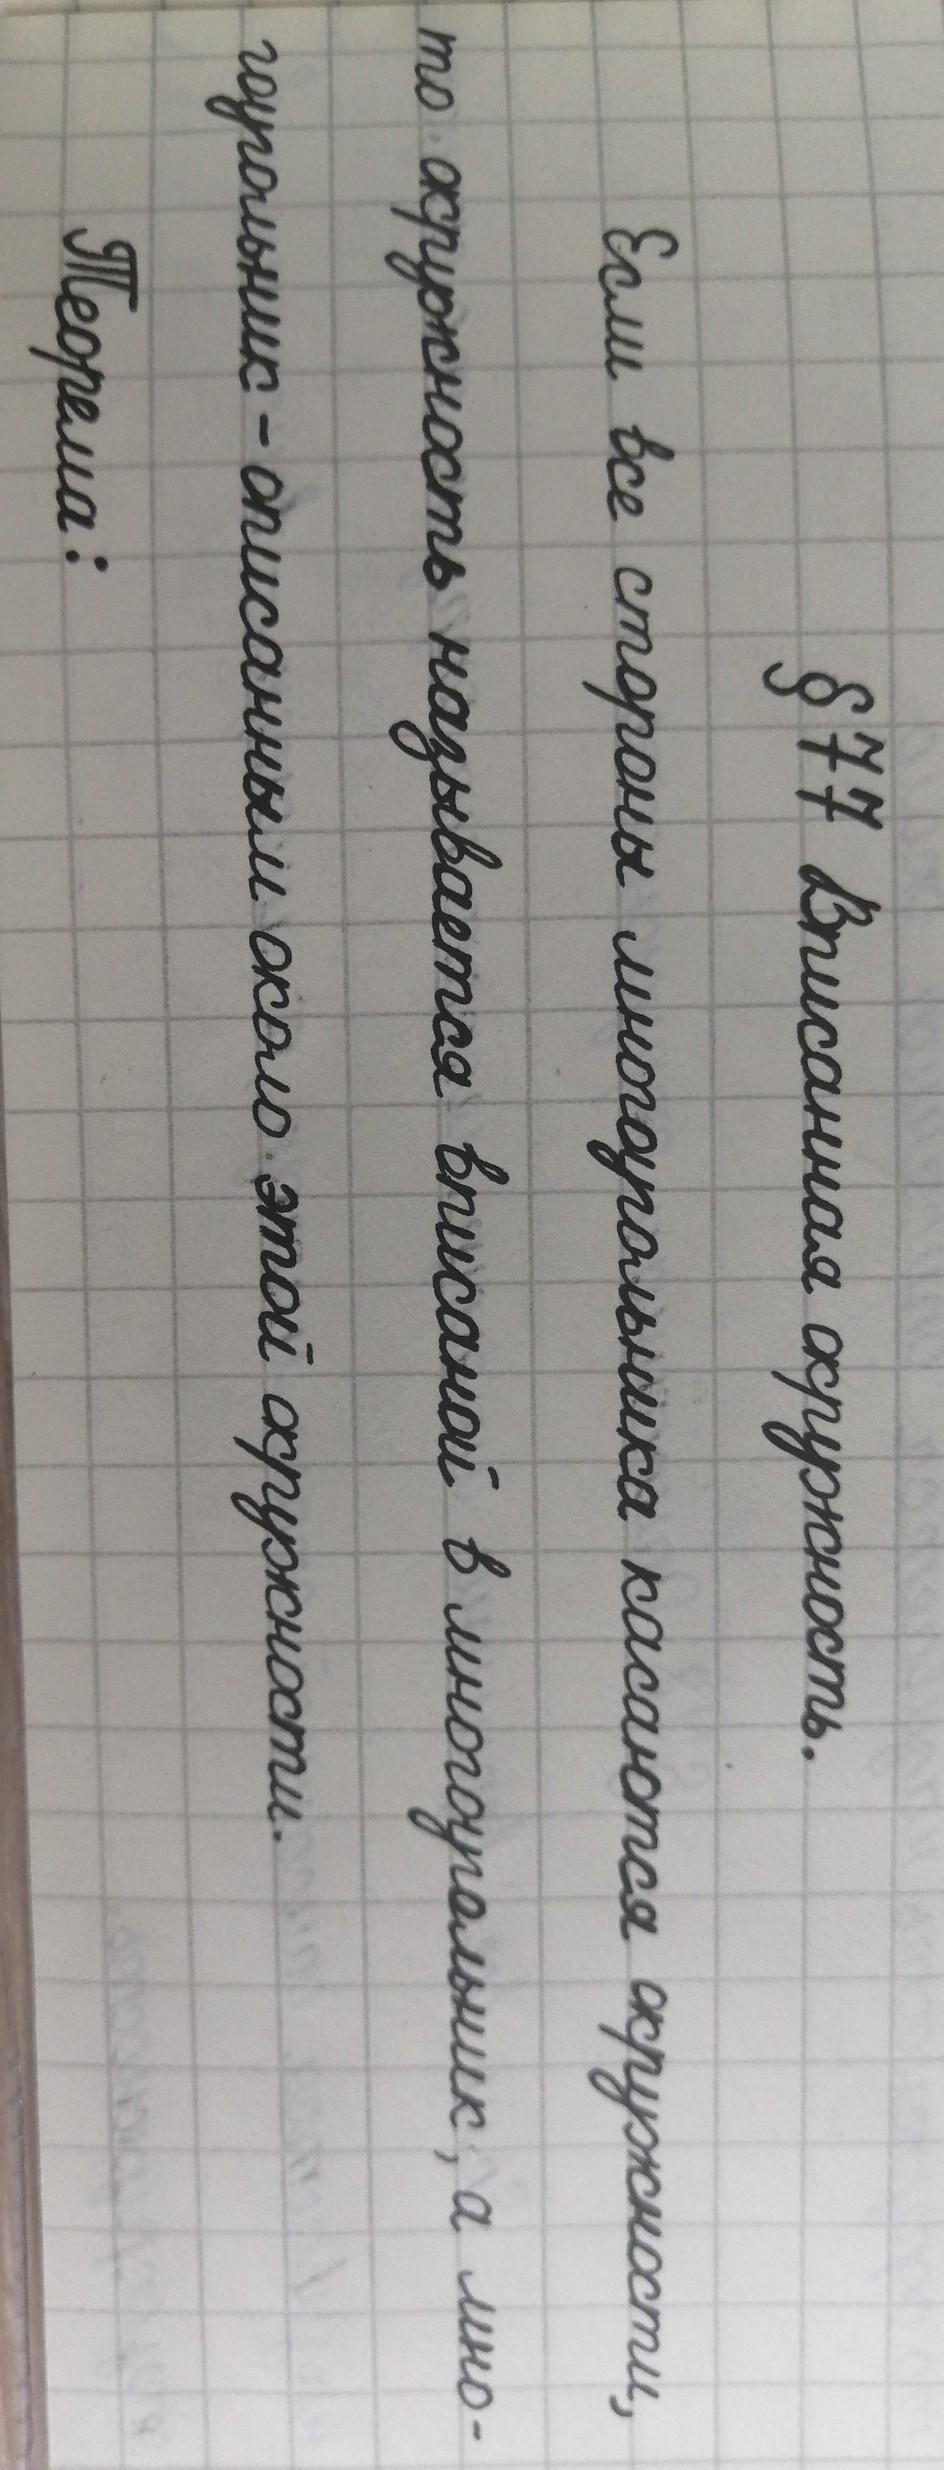 § 77 Вписанная окружность.
Если все стороны многоугольника касаются окружности,
то окружность называется вписаной в многоугольник, а мно-
гоугольник - описанным около этой окружности.
Теорема: